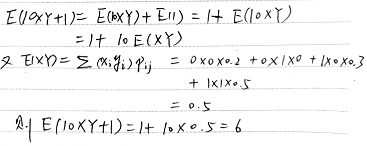 E(10XY+1)= E(10XY)+E(1)=1+ E(10XY)
=1+ 10E(XY)
又 E(XY)= ∑(xᵢyⱼ)pᵢⱼ = 0×0×0.2 +0×1×0 +1×0×0.3
+ 1×1×0.5
= 0.5
则 E(10XY+1)=1+10×0.5=6